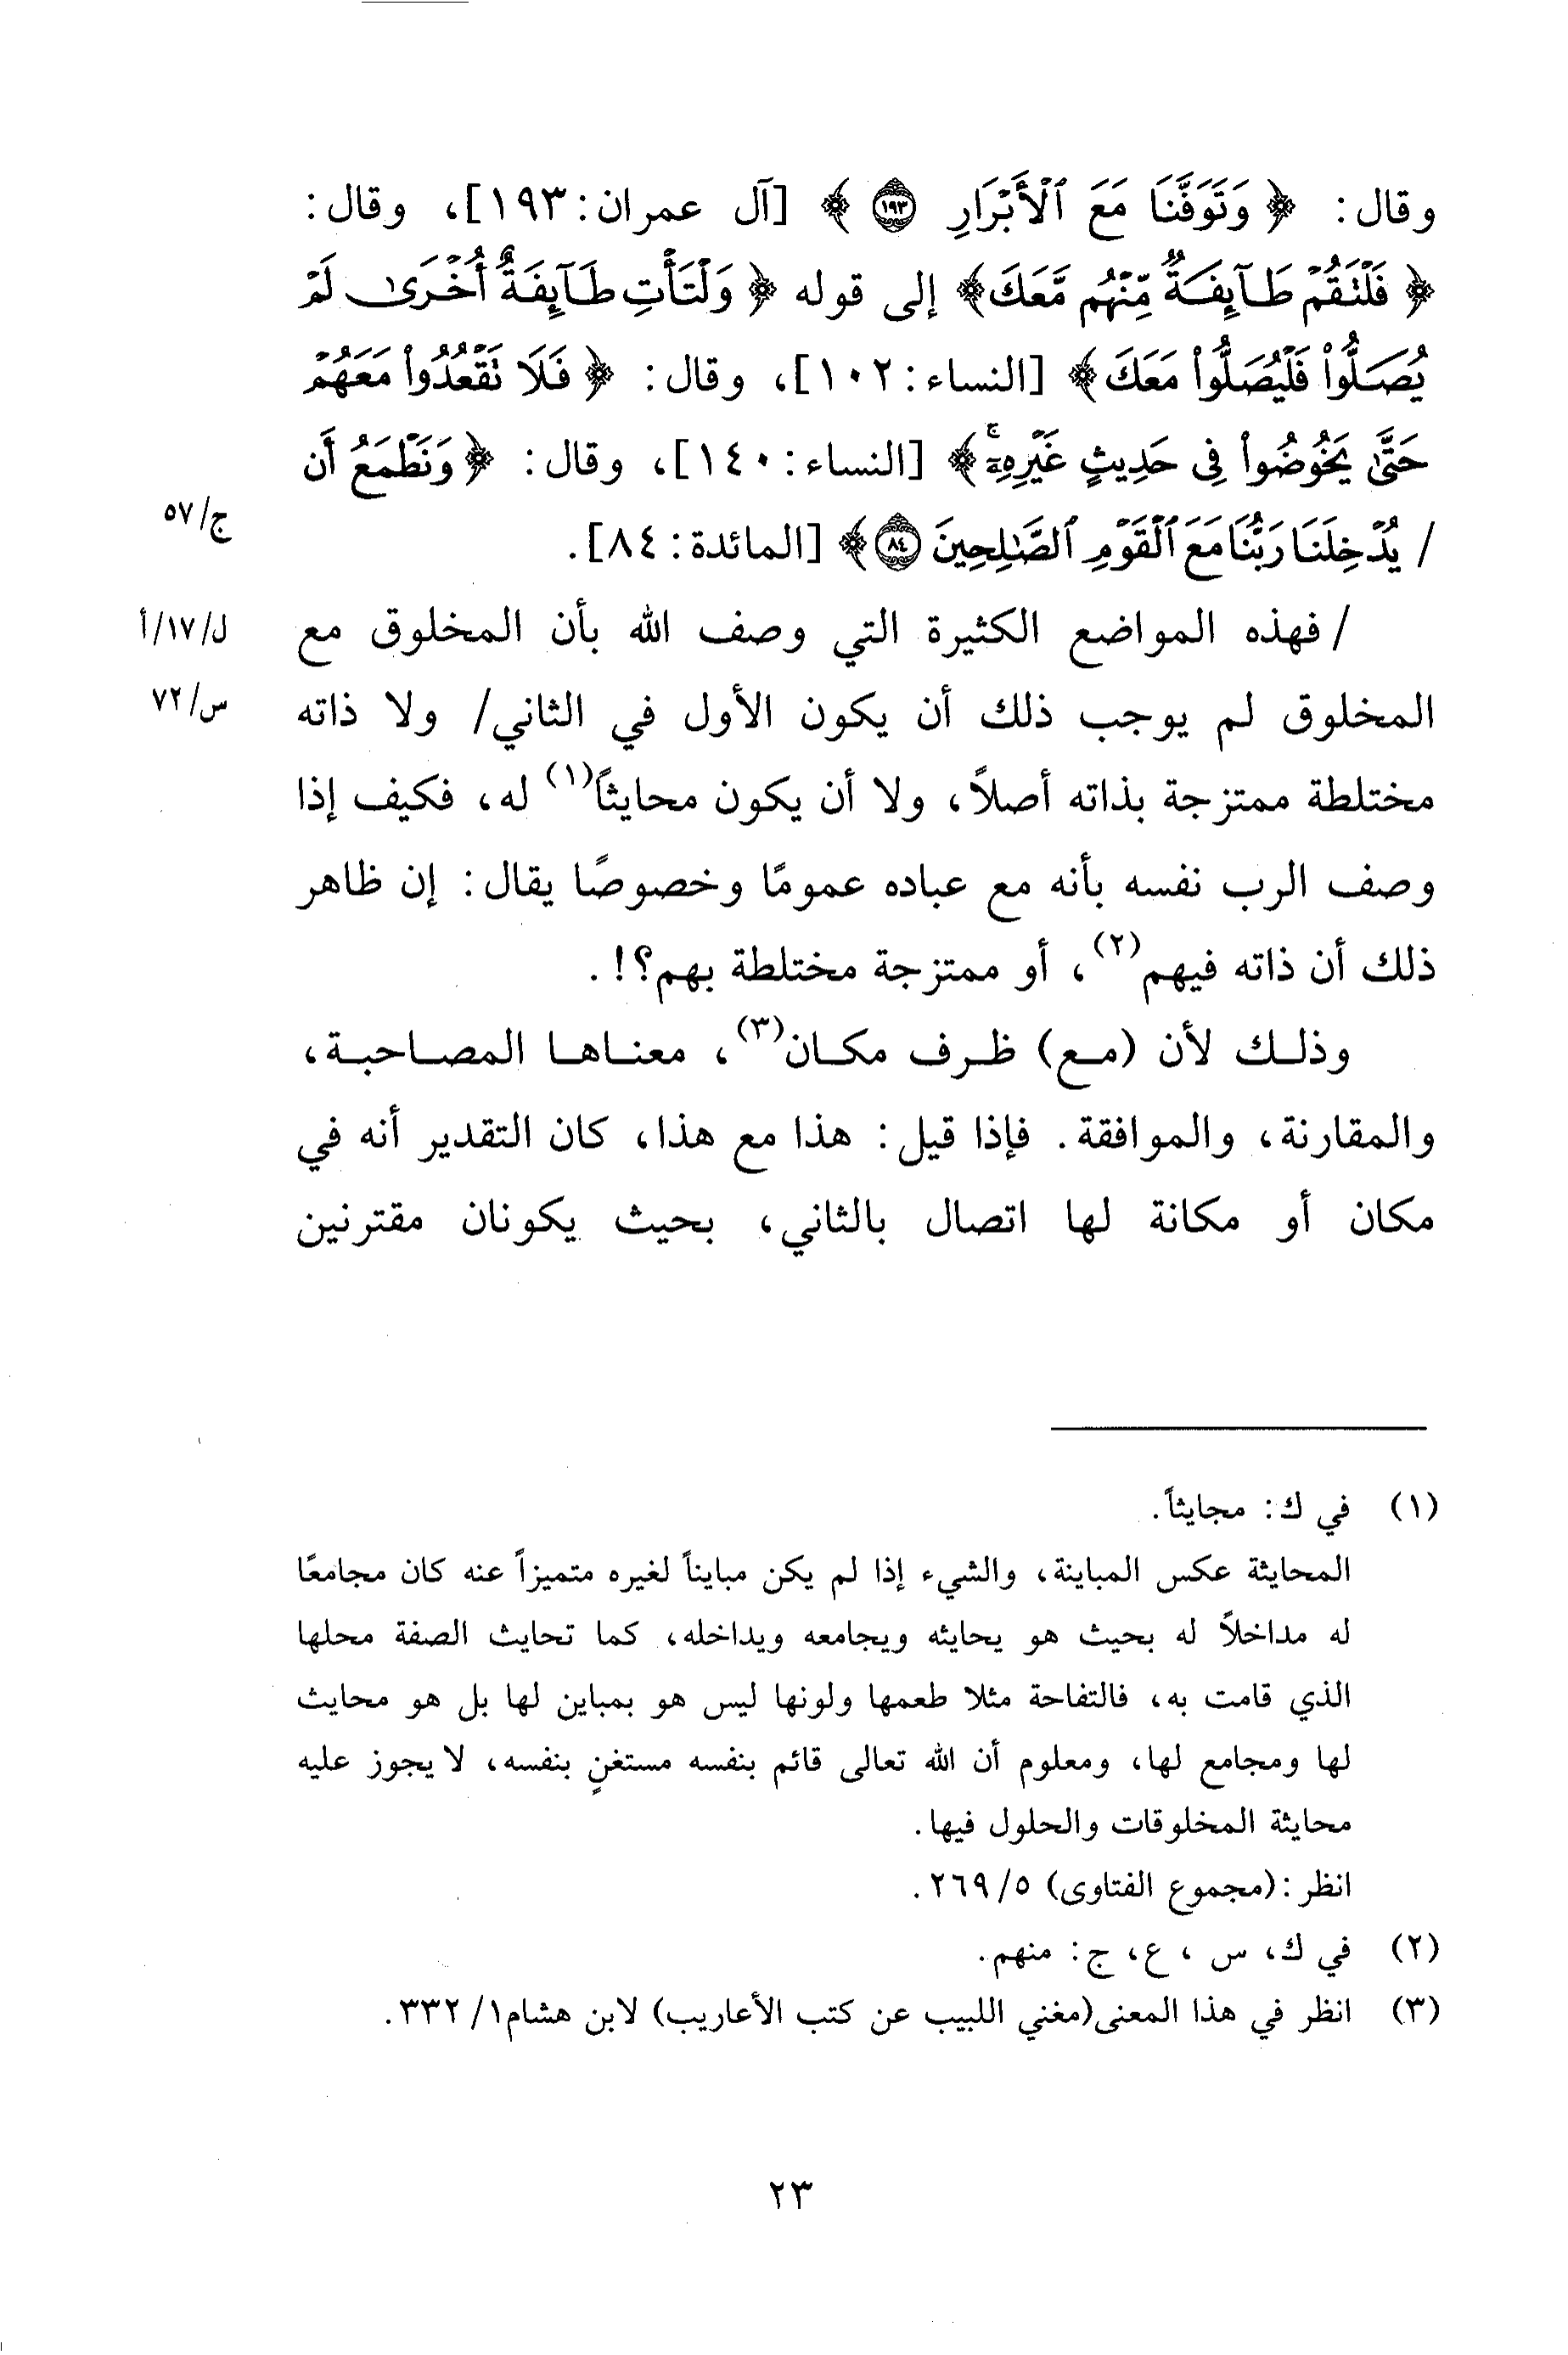 وقال: ﴿ وَتَوَفَّنَا مَعَ ٱلْأَبْرَارِ ١٩٣ ﴾ [آل عمران:١٩٣]، وقال:
﴿ فَلْتَقُمْ طَآئِفَةٌ مِّنْهُم مَّعَكَ﴾ إلى قوله ﴿ وَلْتَأْتِ طَآئِفَةٌ أُخْرَىٰ لَمْ
يُصَلُّوا۟ فَلْيُصَلُّوا۟ مَعَكَ﴾ [النساء:١٠٢]، وقال: ﴿ فَلَا تَقْعُدُوا۟ مَعَهُمْ
حَتَّىٰ يَخُوضُوا۟ فِى حَدِيثٍ غَيْرِهِۦٓۚ﴾ [النساء:١٤٠]، وقال: ﴿وَنَطْمَعُ أَن
ج/٥٧
/ يُدْخِلَنَا رَبُّنَا مَعَ ٱلْقَوْمِ ٱلصَّٰلِحِينَ ٨٤ ﴾ [المائدة:٨٤].
/ فهذه المواضع الكثيرة التي وصف الله بأن المخلوق مع
ل/١٧/أ
المخلوق لم يوجب ذلك أن يكون الأول في الثاني/ ولا ذاته
س/٧٢
مختلطة ممتزجة بذاته أصلاً، ولا أن يكون محايثاً(١) له، فكيف إذا
وصف الرب نفسه بأنه مع عباده عمومًا وخصوصًا يقال: إن ظاهر
ذلك أن ذاته فيهم(٢)، أو ممتزجة مختلطة بهم؟!.
وذلك لأن (مع) ظرف مكان(٣)، معناها المصاحبة،
والمقارنة، والموافقة. فإذا قيل: هذا مع هذا، كان التقدير أنه في
مكان أو مكانة لها اتصال بالثاني، بحيث يكونان مقترنين
(١) في ك: مجايثاً.
المحايثة عكس المباينة، والشيء إذا لم يكن مبايناً لغيره متميزاً عنه كان مجامعًا
له مداخلاً له بحيث هو يحايثه ويجامعه ويداخله، كما تحايث الصفة محلها
الذي قامت به، فالتفاحة مثلا طعمها ولونها ليس هو بمباين لها بل هو محايث
لها ومجامع لها، ومعلوم أن الله تعالى قائم بنفسه مستغنٍ بنفسه، لا يجوز عليه
محايثة المخلوقات والحلول فيها.
انظر:(مجموع الفتاوى) ٢٦٩/٥.
(٢) في ك، س ، ع، ج: منهم.
(٣) انظر في هذا المعنى(مغني اللبيب عن كتب الأعاريب) لابن هشام١/ ٣٣٢.
٢٣